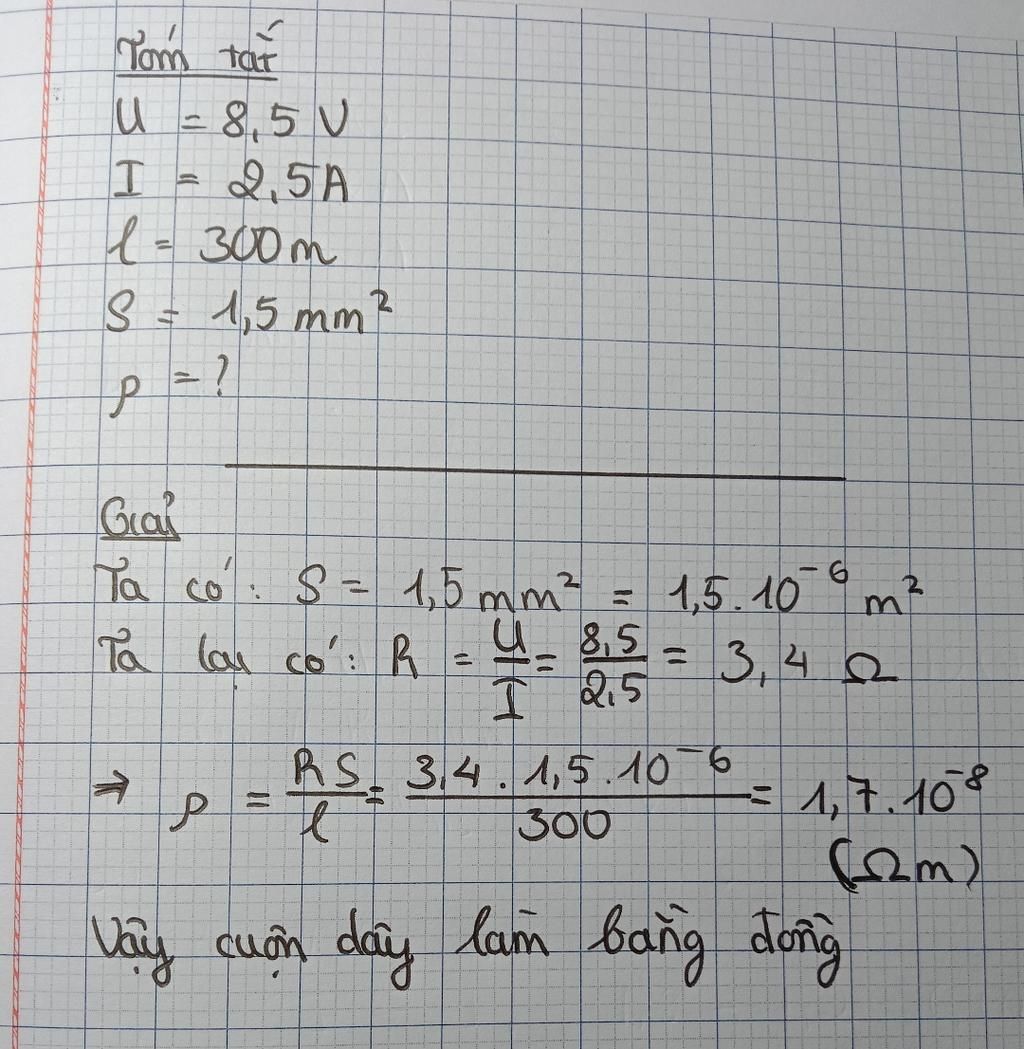 Tóm tắt
U = 8,5 V
I = 2,5A
l = 300m
S = 1,5 mm²
ρ = ?
Giải
Ta có: S = 1,5 mm² = 1,5.10⁻⁶ m²
Ta lại có: R = U/I = 8,5/2,5 = 3,4 Ω
⇒ ρ = RS/l = 3,4 . 1,5 . 10⁻⁶/300 = 1,7.10⁻⁸
(Ωm)
Vậy cuộn dây làm bằng đồng